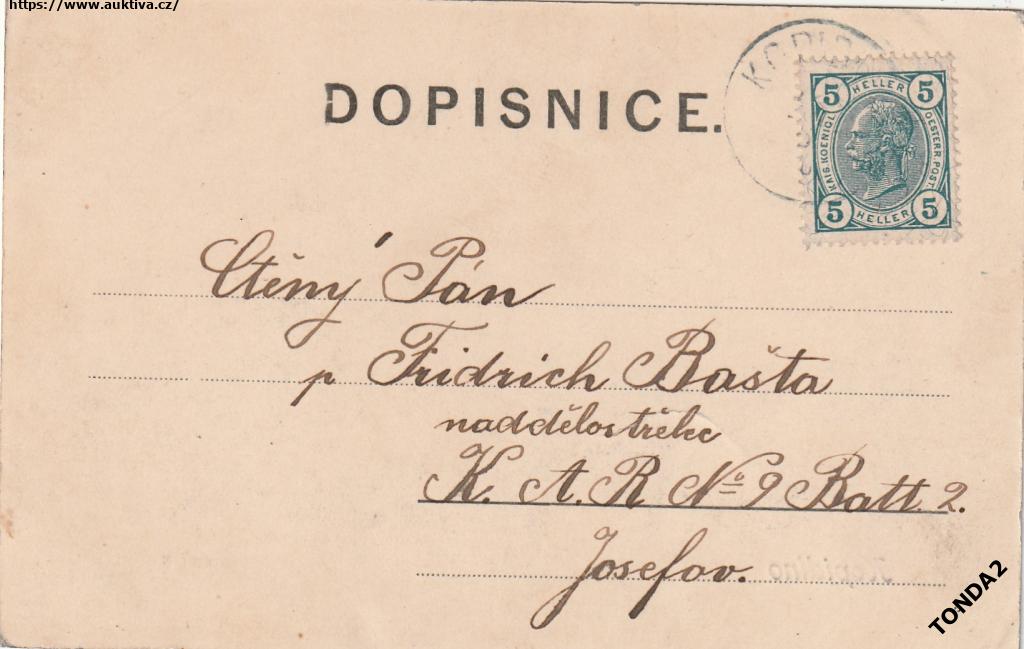 https://www.auktiva.cz/
DOPISNICE.
5 HELLER 5
KAIS. KOENIGL. OESTERR. POST.
5 HELLER 5
Ctěný Pán
p Fridrich Bašta
naddělostřelec
K. A. R No 9 Batt. 2.
Josefov.
TONDA2